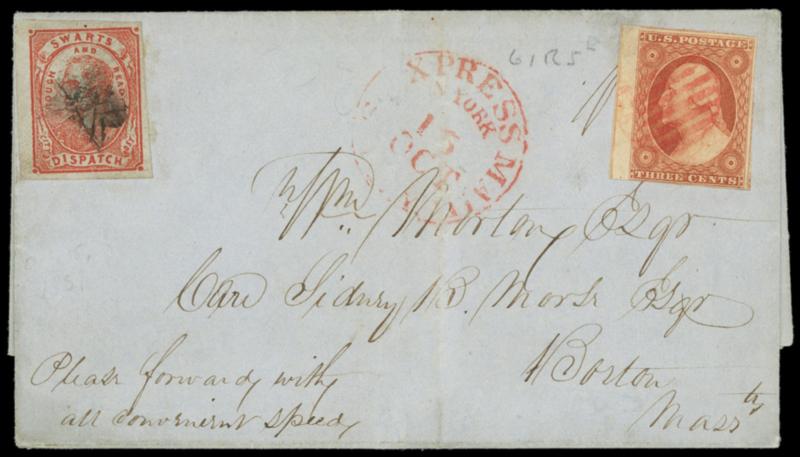 SWARTS
ROUGH AND READY
DISPATCH
EXPRESS MAIL
N YORK
15
OCT
U.S. POSTAGE
THREE CENTS
Wm. Morton Esqr
Care Sidney B. Morse Esqr
Boston
Massts
Please forward with
all convenient speed